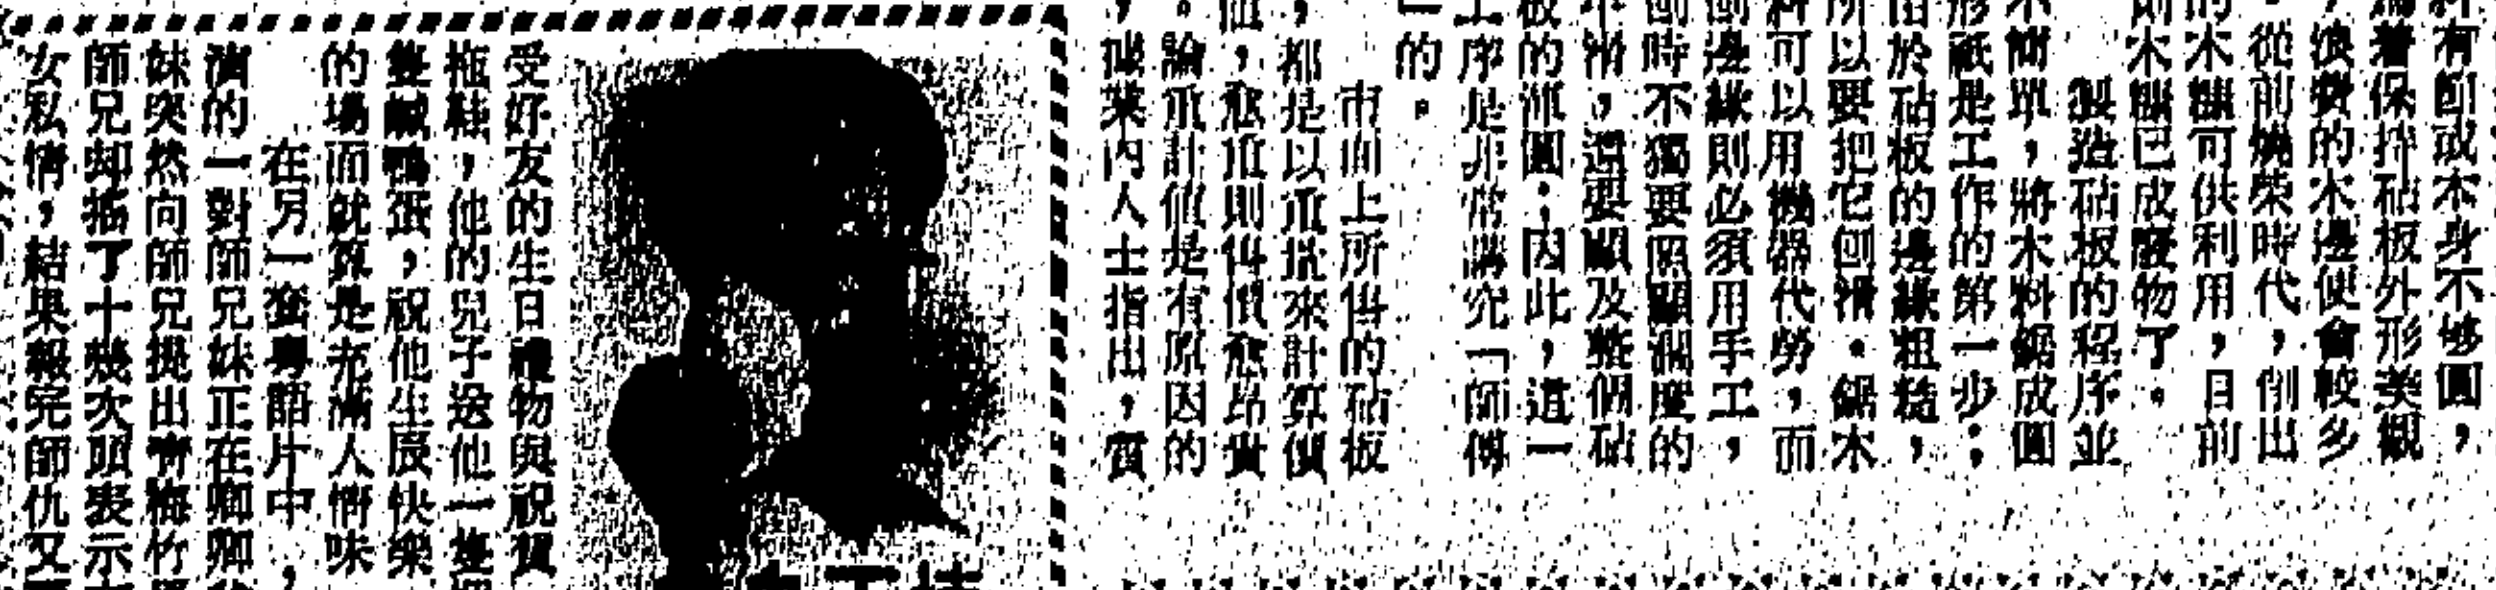 有節或本身不够圓，
着保持砧板外形美觀
浪費的木邊便會較多
從前燒柴時代，倒出
的木糠可供利用，目前
則木糠已成廢物了。
製造砧板的程序並
不簡單，將木料鋸成圓
形祇是工作的第一步；
由於砧板的邊緣粗糙，
所以要把它刨滑。鋸木
料可以用機器代勞，而
刨邊緣則必須用手工，
刨時不獨要照顧濶度的
，還要顧及整個砧
板的渾圓；因此，這一
工序是非常講究「師傅
」的。
市面上所售的砧板
都是以重量來計算價
值，愈重則售價愈昂貴
。論重計值是有原因的
，據業內人士指出，質
受好友的生日禮物與祝賀
拖鞋，他的兒子送他一隻
隻鹹鴨蛋，祝他生辰快樂
的場面就算是充滿人情味
在另一套粵語片中，
演的一對師兄妹正在卿卿
妹突然向師兄提出青梅竹
師兄却搖了十幾次頭表示
女私情，結果報完師仇又